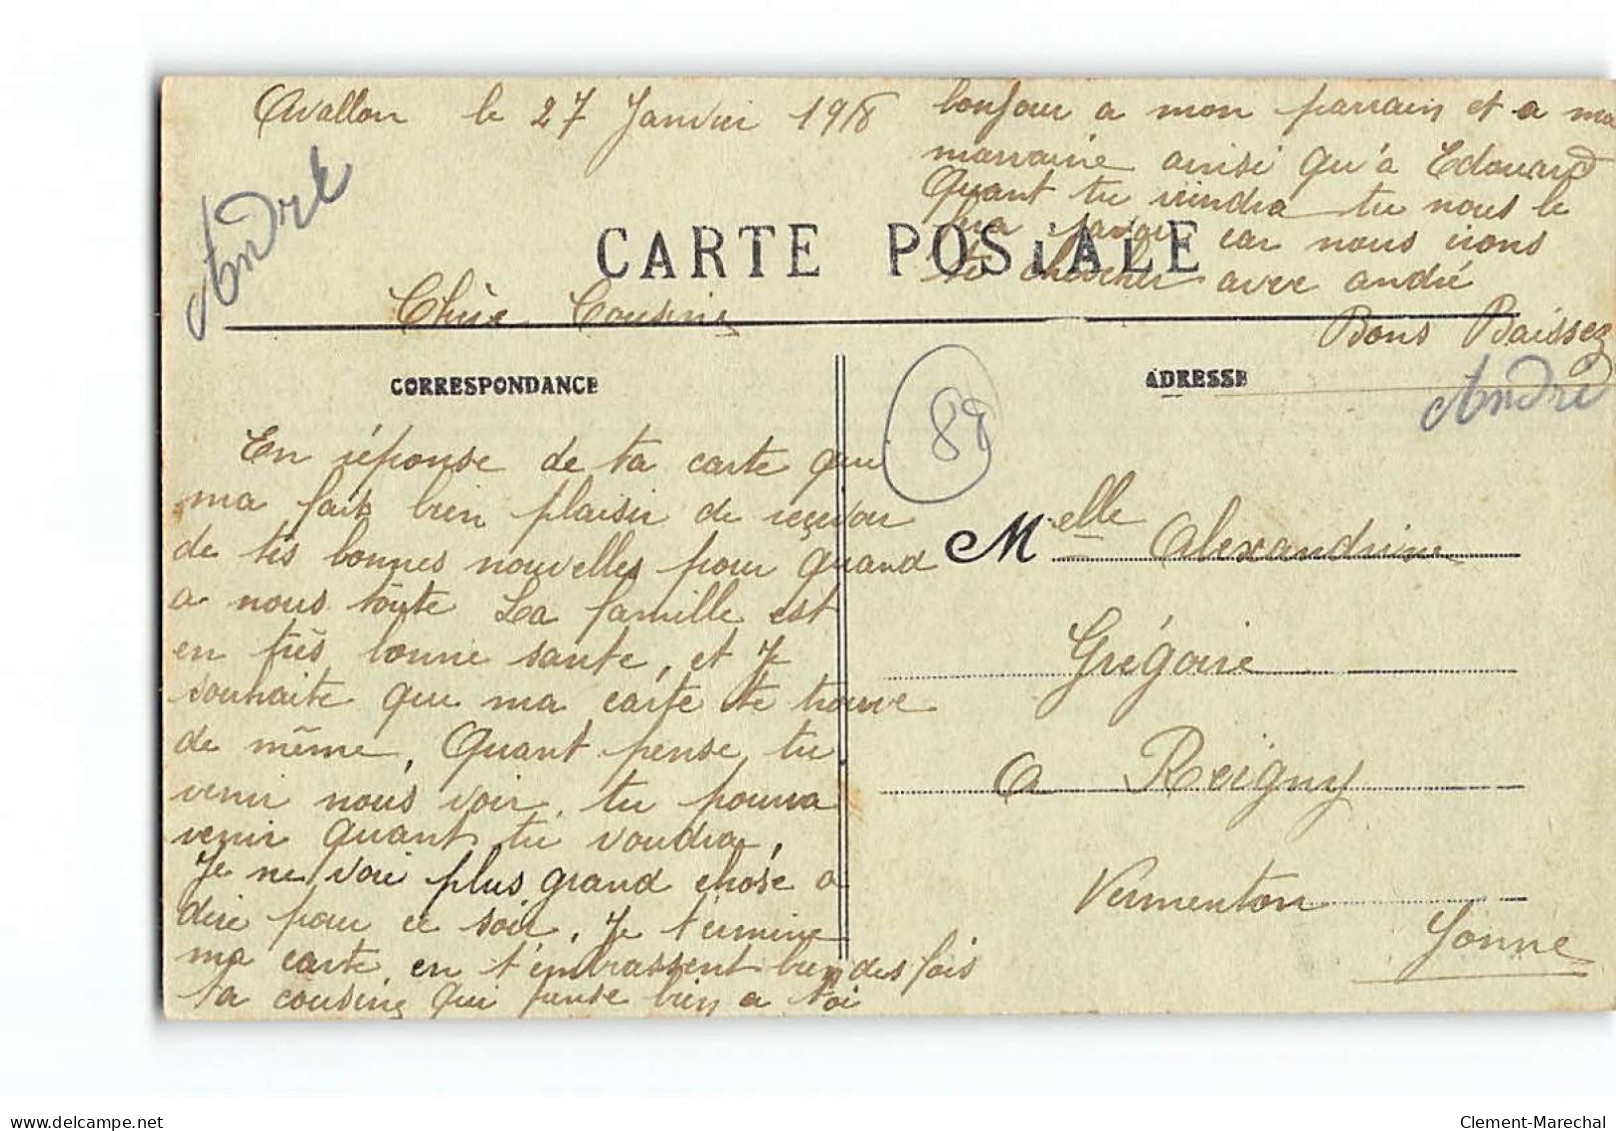 Avallon le 27 Janvier 1918
André
Chère Cousine
CARTE POSTALE
CORRESPONDANCE
En réponse de ta carte que
ma fait bien plaisir de reçevoir
de tes bonnes nouvelles pour quand
a nous toute La famille est
en très bonne sante, et Je
souhaite que ma carte te trouve
de même, Quant pense tu
venir nous voir, tu pourra
venir quant tu voudra,
Je ne voie plus grand chose a
dire pour ce soir, Je termine
ma carte en t'embrassent bien des fois
ta cousine qui pense bien a toi
bonjour a mon parrain et a ma
marraine ainsi qu'a Edouard
Quant tu viendra tu nous le
fra savoir car nous irons
te chercher avec andré
Bons Baissez
André
ADRESSE
89
Melle Alexandrine
Grégoire
A Reigny
Vermenton
Yonne
delcampe.net
Clement-Marechal